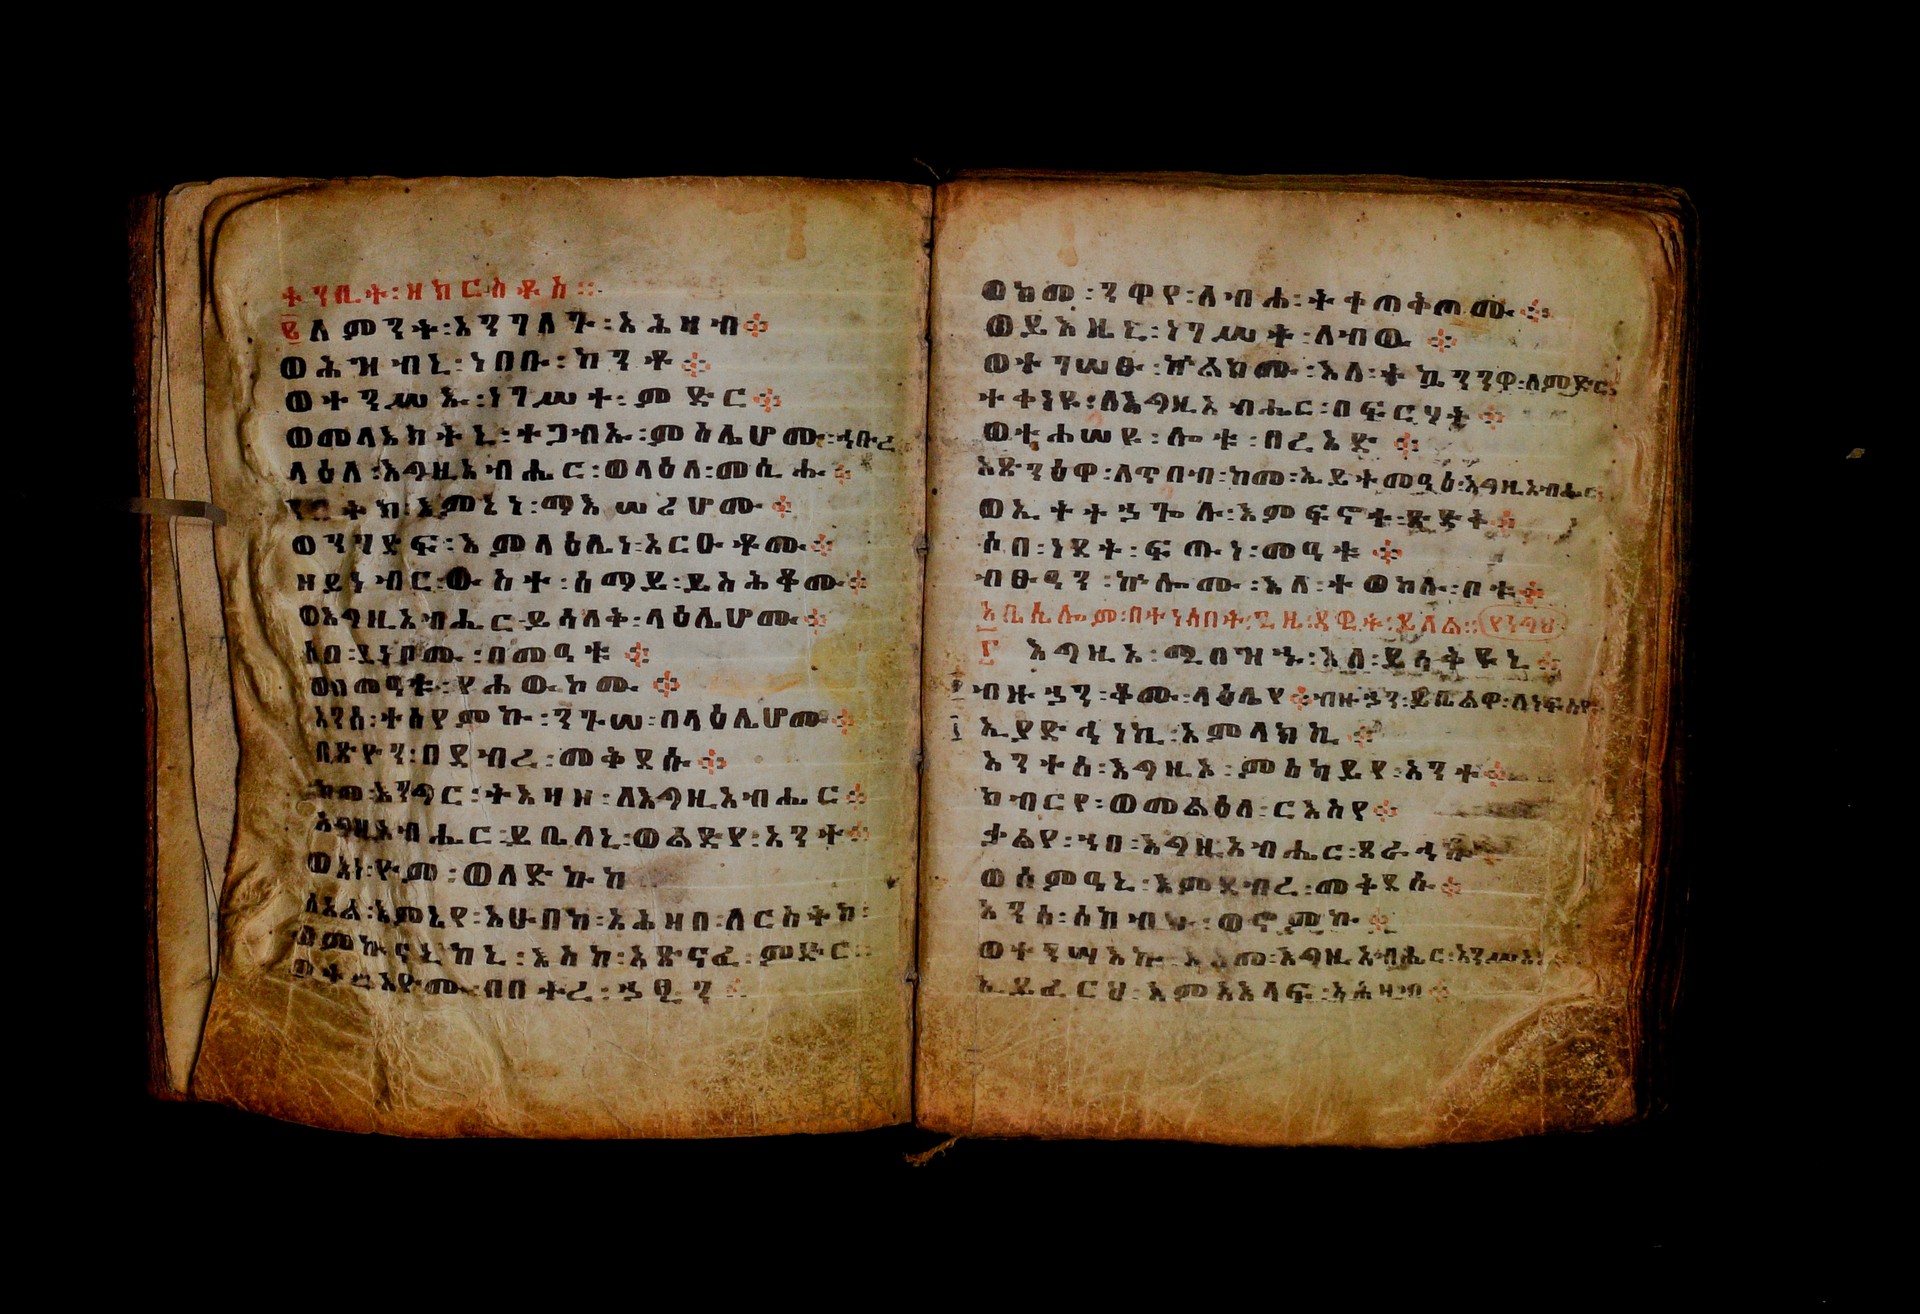 ትንቢት፡ዘክርስቶስ።
፪ለምንት፡አንገለጉ፡አሕዛብ፨
ወሕዝብኒ፡ነበቡ፡ከንቶ፨
ወተንሥኡ፡ነገሥተ፡ምድር፨
ወመላእክትኒ፡ተጋብኡ፡ምስሌሆሙ፡ኀቡረ
ላዕለ፡እግዚአብሔር፡ወላዕለ፡መሲሑ፨
ንበትክ፡እምኔነ፡ማእሠሪሆሙ፨
ወንገድፍ፡እምላዕሌነ፡አርዑቶሙ፨
ዘይነብር፡ውስተ፡ሰማይ፡ይስሕቆሙ፨
ወእግዚአብሔር፡ይሳለቅ፡ላዕሌሆሙ፨
ሶበ፡ይነቦሙ፡በመዓቱ፨
ወበመዓቱ፡የሐውኮሙ፨
አንሰ፡ተሰየምኩ፡ንጉሠ፡በላዕሌሆሙ፨
በጽዮን፡በደብረ፡መቅደሱ፨
ከመ፡እንግር፡ትእዛዘ፡ለእግዚአብሔር፨
እግዚአብሔር፡ይቤለኒ፡ወልድየ፡አንተ፨
ወአነ፡ዮም፡ወለድኩከ
ሰአል፡እምኔየ፡እሁበከ፡አሕዛበ፡ለርስትከ፡
ወምኩናኒከኒ፡እስከ፡አጽናፈ፡ምድር፡
ወትሬእዮሙ፡በበትረ፡ኃፂን፨
ወከመ፡ንዋየ፡ለብሐ፡ተቀጠቅጦሙ፨
ወይእዜኒ፡ነገሥት፡ለብዉ፨
ወተገሠፁ፡ኵልክሙ፡እለ፡ትኴንንዋ፡ለምድር፨
ተቀነዩ፡ለእግዚአብሔር፡በፍርሃት፨
ወተሐሠዩ፡ሎቱ፡በረአድ፨
አጽንዕዋ፡ለጥበብ፡ከመ፡ኢይትመዓዕ፡እግዚአብሔር፨
ወኢትትኃጐሉ፡እምፍኖቱ፡ጽድቅ፨
ሶበ፡ነደት፡ፍጡነ፡መዓቱ፨
ብፁዓን፡ኵሎሙ፡እለ፡ተወከሉ፡ቦቱ፨
አቤሴሎም፡በተነሳበት፡ጊዜ፡ዳዊት፡ይላል። የንግህ
፫ እግዚኦ፡ሚበዝኁ፡እለ፡ይሳቅዩኒ፨
ብዙኃን፡ቆሙ፡ላዕሌየ፨ብዙኃን፡ይቤልዋ፡ለነፍስየ፨
ኢያድኅነኪ፡አምላክኪ፨
አንተሰ፡እግዚኦ፡ምስካይየ፡አንተ፨
ክብርየ፡ወመልዕለ፡ርእስየ፨
ቃልየ፡ኀበ፡እግዚአብሔር፡ጸራኅኩ፨
ወሰምዓኒ፡እምደብረ፡መቅደሱ፨
አንሰ፡ሰከብኩ፡ወኖምኩ፨
ወተንሣእኩ፡እስመ፡እግዚአብሔር፡አንሥአኒ፨
ኢይፈርህ፡እምአእላፍ፡አሕዛብ፨